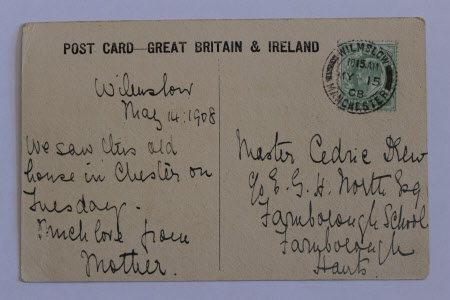 POST CARD—GREAT BRITAIN & IRELAND
WILMSLOW
10 15 AM
MY 15
08
MANCHESTER
Wilmslow
May 14: 1908
We saw this old
house in Chester on
Tuesday.
Much love from
Mother.
Master Cedric Drew
c/o E. G. H. North Esq
Farnborough School
Farnborough
Hants.